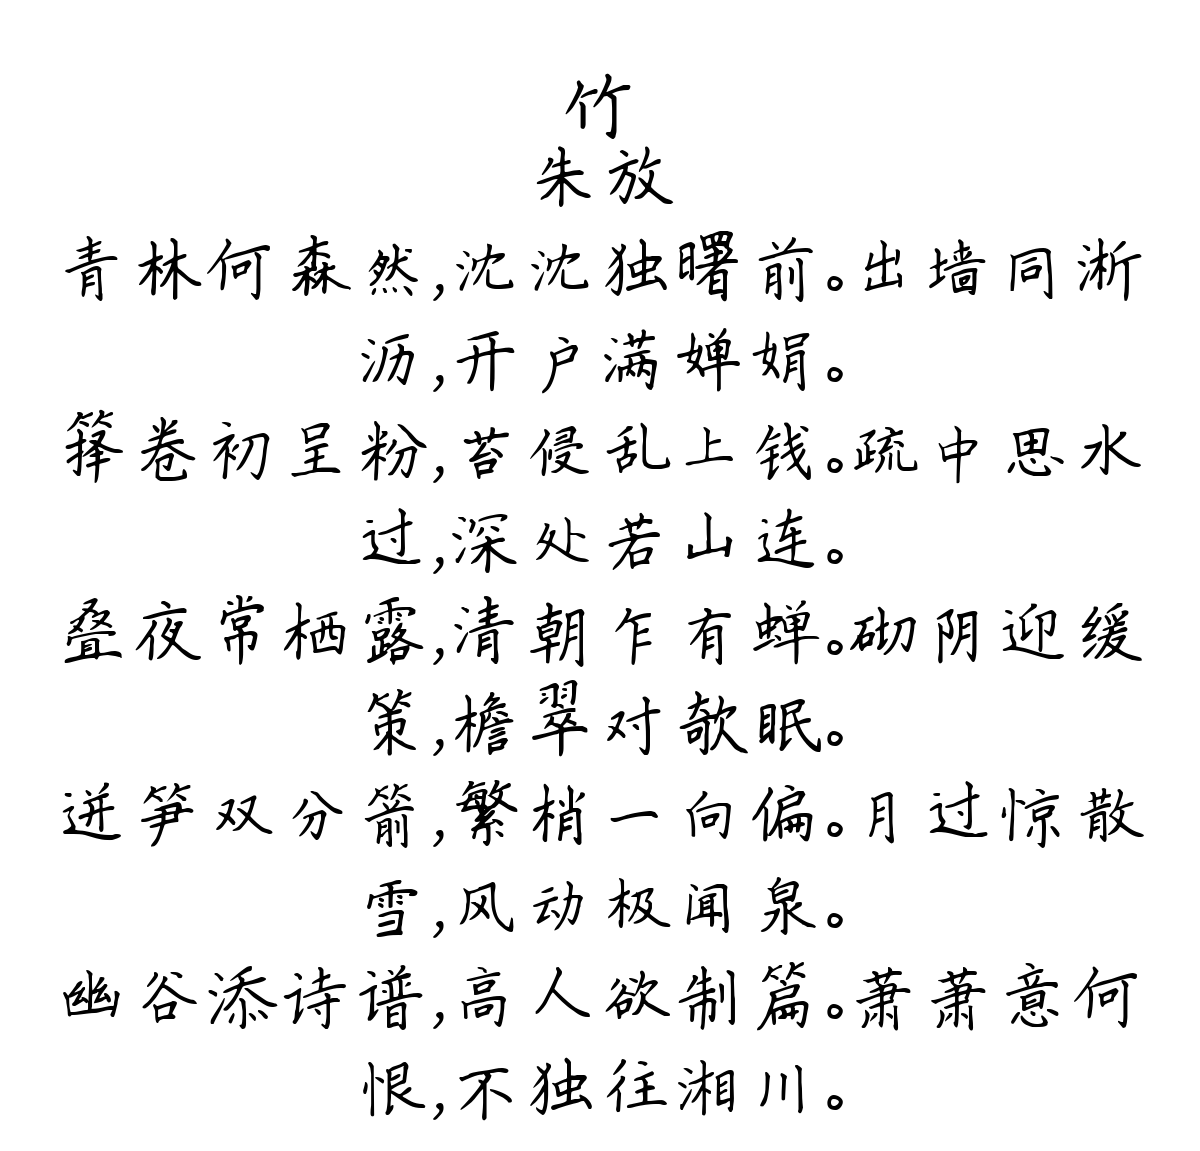 竹
朱放
青林何森然,沈沈独曙前。出墙同淅
沥,开户满婵娟。
箨卷初呈粉,苔侵乱上钱。疏中思水
过,深处若山连。
叠夜常栖露,清朝乍有蝉。砌阴迎缓
策,檐翠对欹眠。
迸笋双分箭,繁梢一向偏。月过惊散
雪,风动极闻泉。
幽谷添诗谱,高人欲制篇。萧萧意何
恨,不独往湘川。